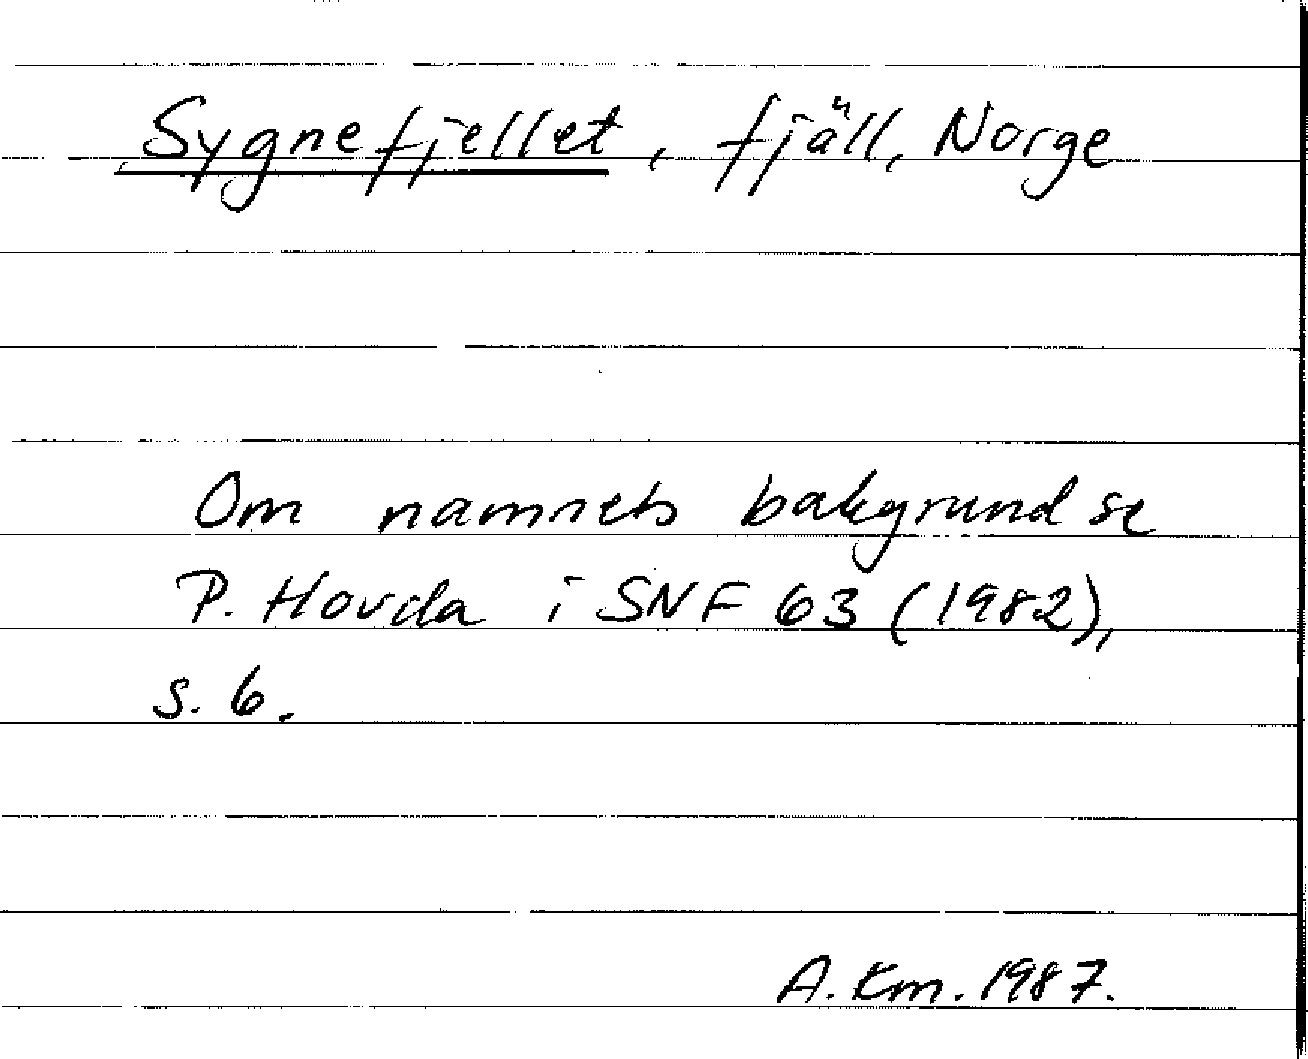 Sygnefjellet, fjäll, Norge
Om namnets bakgrund se
P. Hovda i SNF 63 (1982),
s. 6.
A. Km. 1987.